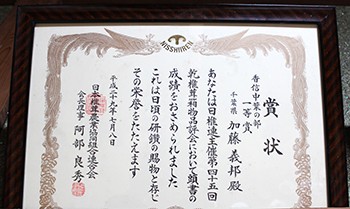 NISSHIIREN
賞状
香信中葉の部
一等賞
千葉県 加藤義邦殿
あなたは日椎連主催第四十五回
乾椎茸箱物品評会において頭書の
成績をおさめられました
これは日頃の研鑽の賜物と存じ
その栄誉をたたえます
平成二十九年七月八日
日本椎茸農業協同組合連合会
会長理事 阿部良秀